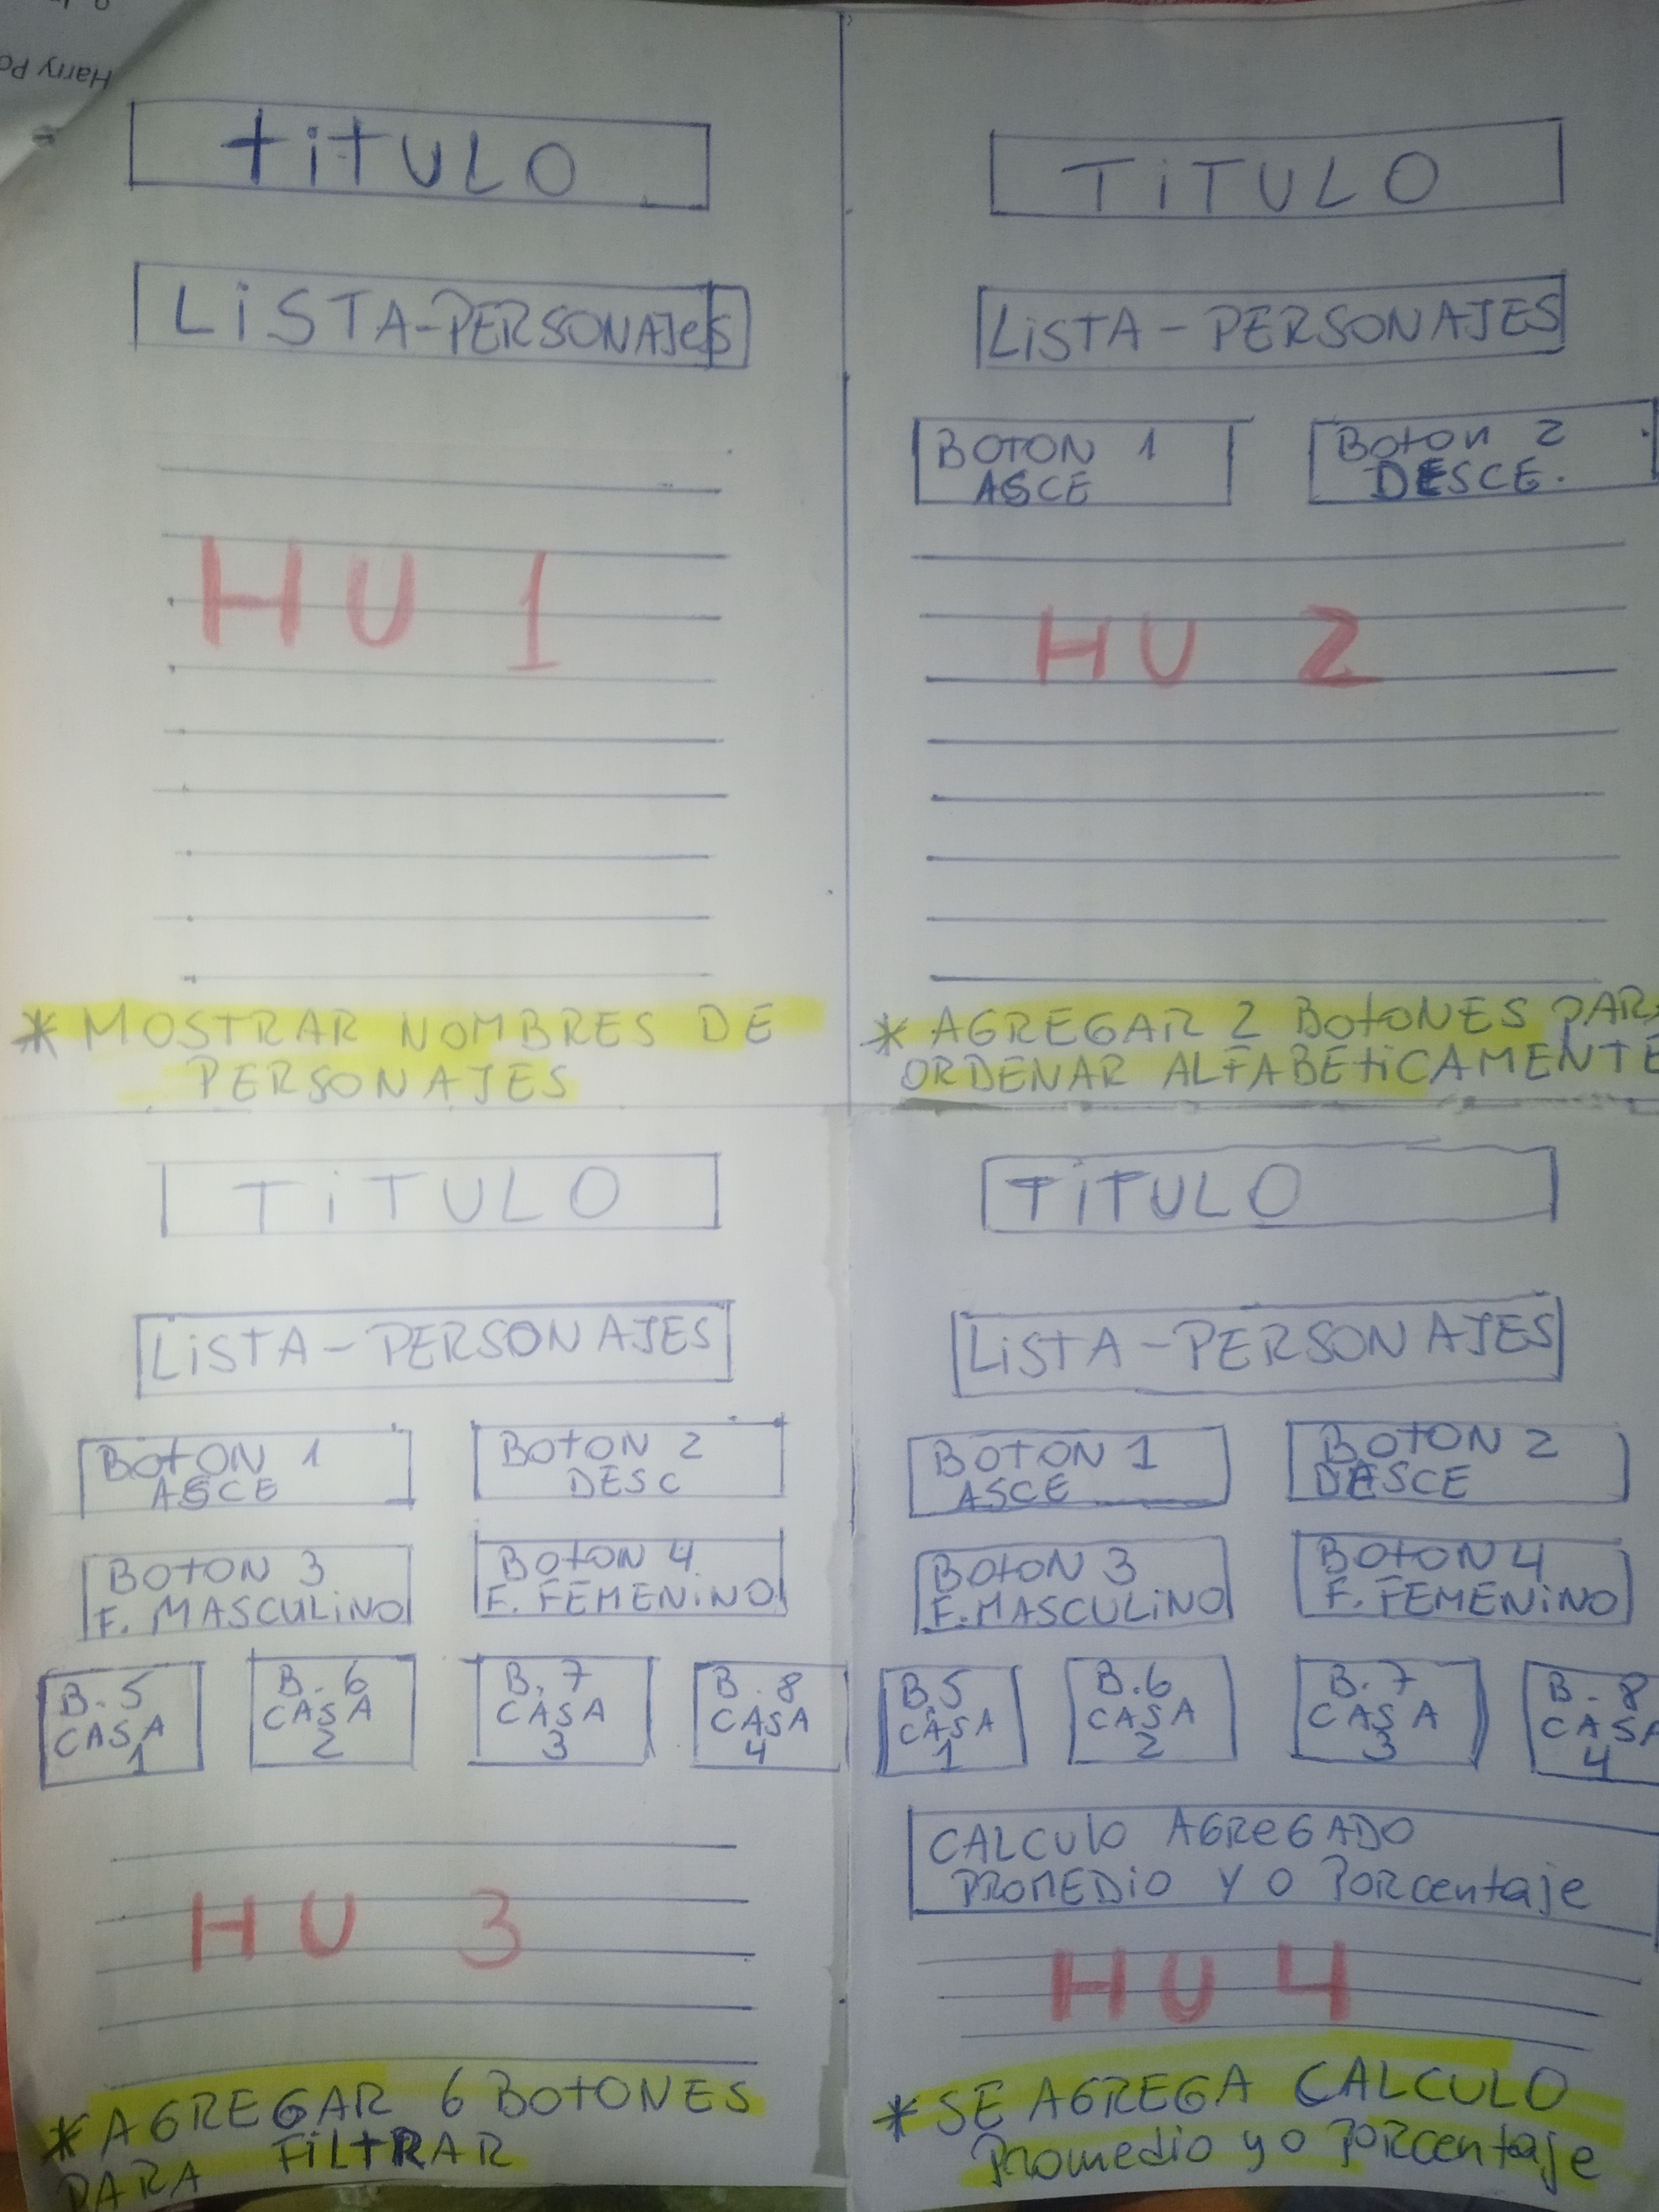 Harry Po
tiTULO
LiSTA-PERSONAJeS
HU 1
* MOSTRAR NOMBRES DE
PERSONAJES
TiTULO
LiSTA - PERSONAJES
BOTON 1
ASCE
Boton 2
DESCE.
HU 2
* AGREGAR 2 BotONES PARA
ORDENAR ALFABEtiCAMENTE
TiTULO
LiSTA - PERSONAJES
BotON 1
ASCE
BOtON 2
DESC
BOtON 3
F. MASCULiNO
BOtON 4
F. FEMENiNO
B. 5
CASA
1
B. 6
CASA
2
B. 7
CASA
3
B. 8
CASA
4
HU 3
* AGREGAR 6 BOtONES
PARA FiLtRAR
TiTULO
LiSTA - PERSONAJES
BOTON 1
ASCE
BOtON 2
DASCE
BOtON 3
F. MASCULiNO
BOtON 4
F. FEMENiNO
B.5
CASA
1
B.6
CASA
2
B. 7
CASA
3
B. 8
CASA
4
CALCulo AGReGADO
PROMEDio Y O PORcentaje
HU 4
* SE AGREGA CALCULO
Promedio y o PORcentaje